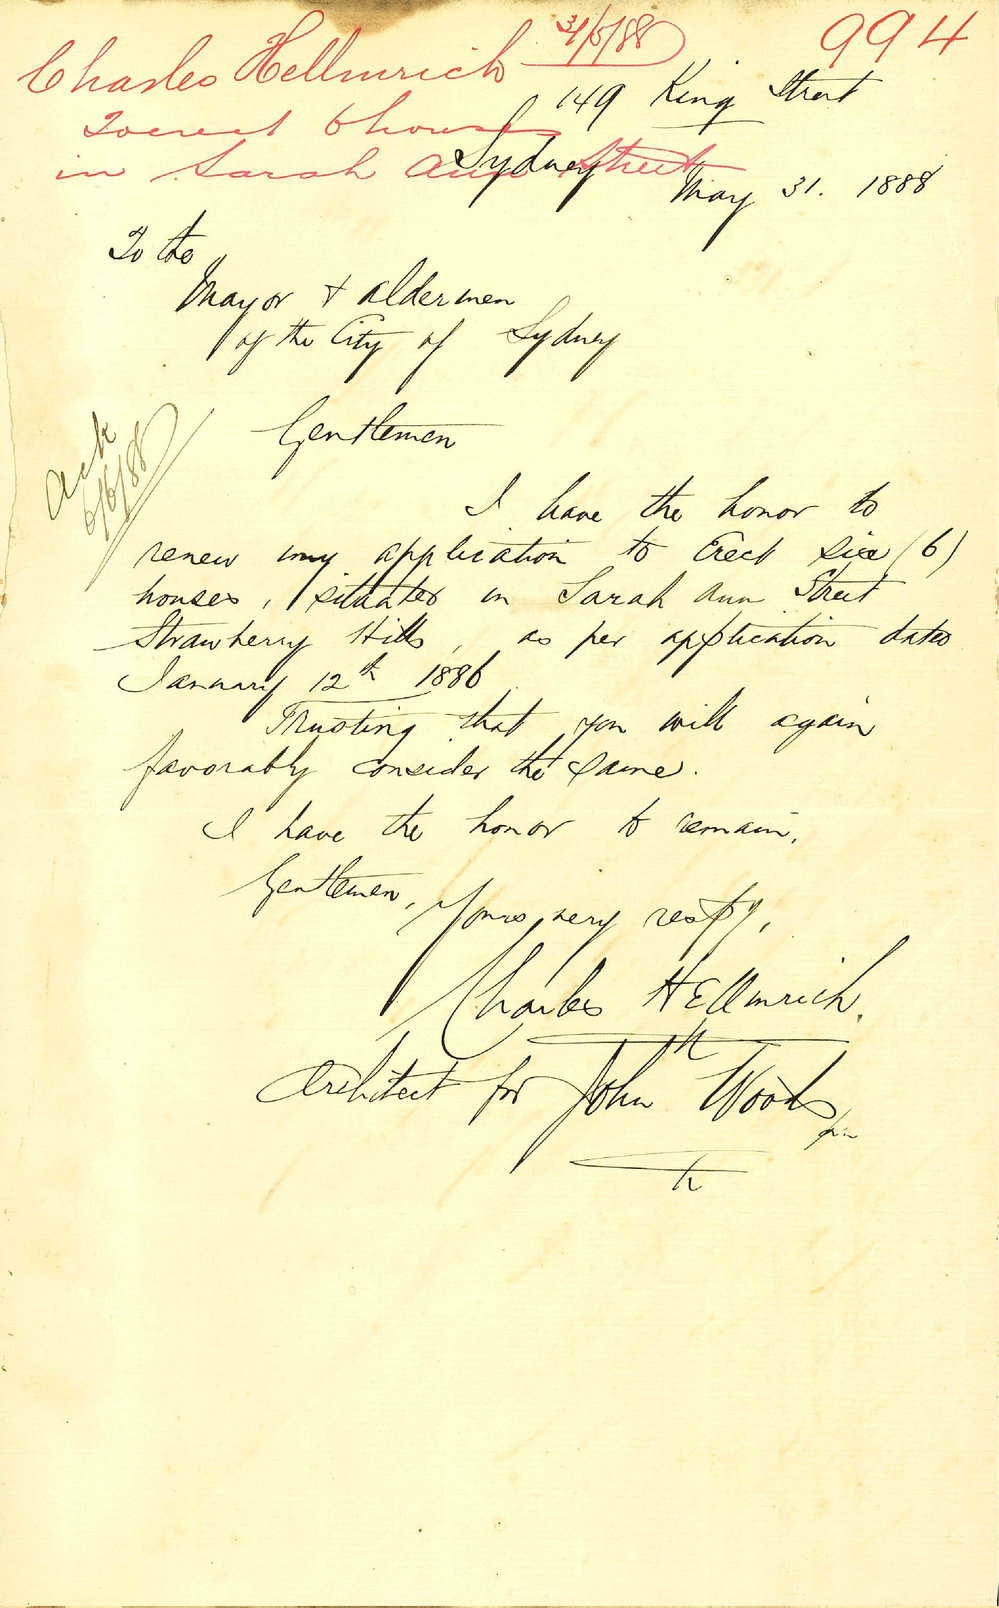 Charles Hellmrich 31/5/88 994
To erect 6 houses
in Sarah Ann Street
149 King Street
Sydney
May 31. 1888
To the
Mayor & Aldermen
of the City of Sydney
Gentlemen
Ack
6/6/88
I have the honor to
renew my application to Erect six (6)
houses, situated in Sarah Ann Street
Strawberry Hills, as per application dated
January 12th 1886
Trusting that you will again
favorably consider the same.
I have the honor to remain,
Gentlemen,
Yours very respfy,
Charles HEllmrich.
Architect for John Woods